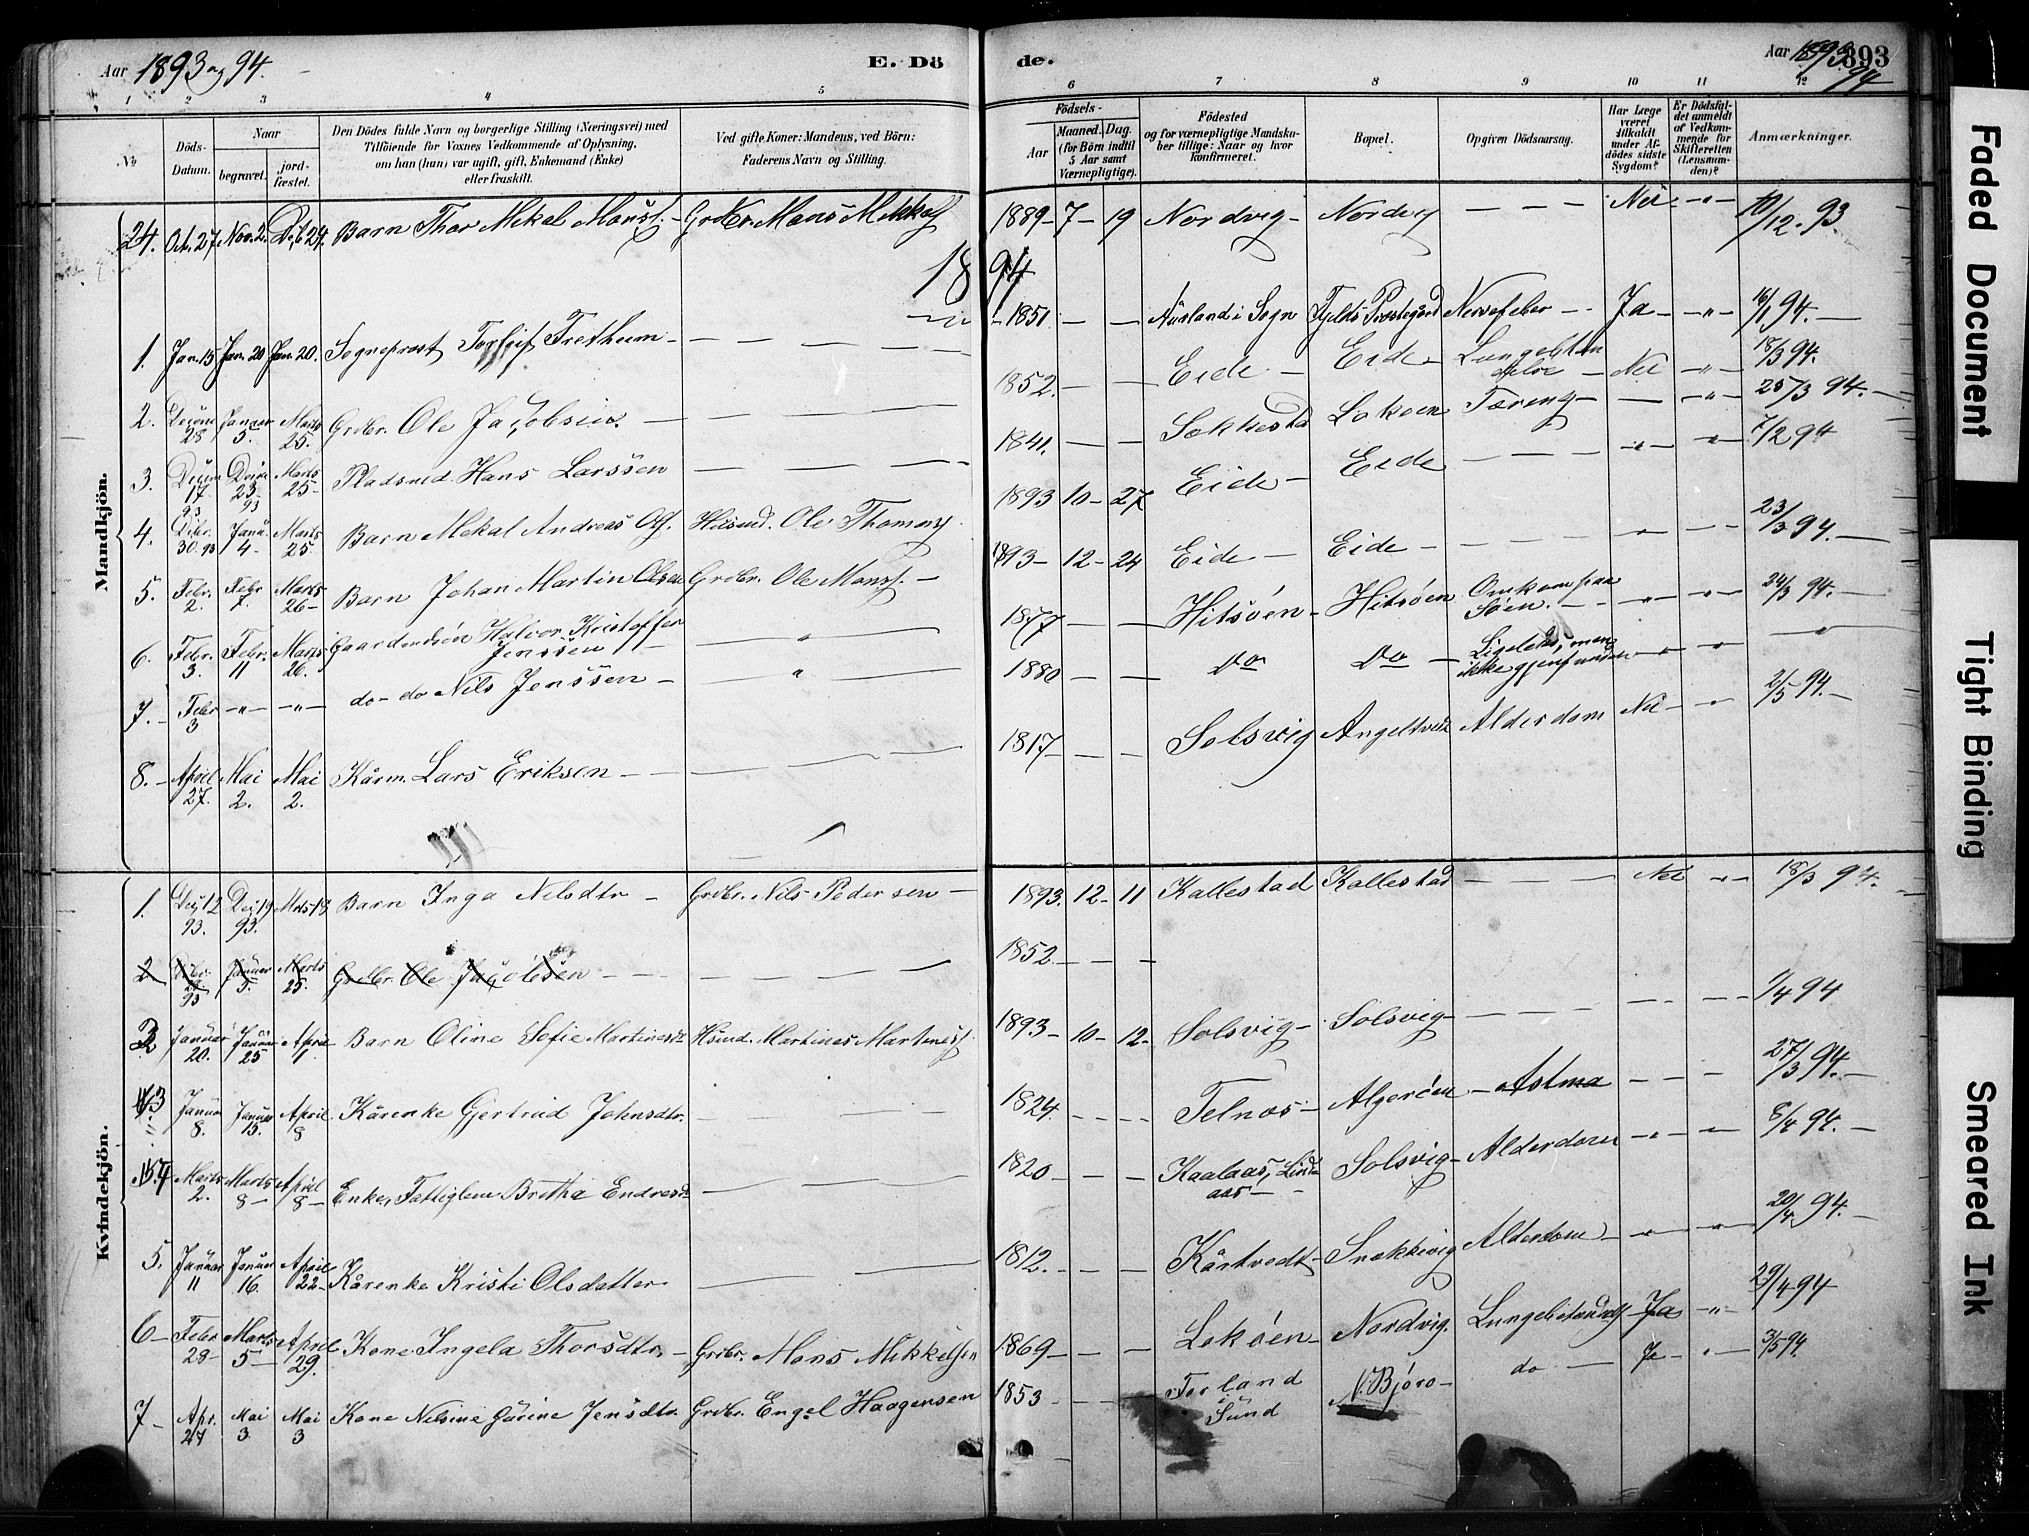 Aar 1893 og 94. E. Dö de. Aar 1893 94 393
1 2 3 4 5 6 7 8 9 10 11 12
No
Döds-Datum.
Naar
begravet.
jordfæstet.
Den Dödes fulde Navn og borgerlige Stilling (Næringsvei) med
Tilföiende for Voxnes Vedkommende af Oplysning,
om han (hun) var ugift, gift, Enkemand (Enke)
eller fraskilt.
Ved gifte Koner: Mandens, ved Börn:
Faderens Navn og Stilling.
Födsels-
Aar
Maaned. Dag.
(for Börn indtil
5 Aar samt
Værnepligtige).
Födested
og for værnepligtige Mandskaber tillige: Naar og hvor
konfirmeret.
Bopæl.
Opgiven Dödsaarsag.
Har Læge
været
tilkaldt
under Afdödes sidste
Sygdom?
Er Dödsfaldet anmeldt
af Vedkommende for
Skifteretten
(Lensmanden)?
Anmærkninger.
Mandkjön.
24. Oct. 27 Nov. 2. Barn Thor Mekal Monss. - Grdbr. Mons Mikkels 1889 - 7 - 19 Nordvig - Nordvig — — — Nei - " - 10/12. 93.
1894
1. Jan. 15 Jan. 20 Jan. 20. Sogneprest Torleif Fretheim — 1851 — — Aurland i Sogn Fjelds Prestegård Nervefeber — Ja — " — 16/1 94.
2. Decem 28 Januar 5. Marts 25. Grdbr. Ole Jacobsen. — 1852. — — Eide — Eide — Lungebetændelse — Nei — " — 18/3 94.
3. Decem 17. 93 Decem 23 93 Marts 25 Pladsmd Hans Larssen — 1841. — — Sekkestad Lokøen Tæring — — " — 25/3 94.
4. Decbr. 30. 93 Janu. 4 Marts 25 Barn Mekal Andreas Ols. Husmd. Ole Thomass 1893 10 - 27 Eide — Eide — — — " — " — 7/2 94
5. Febr. 2. Febr 7. Marts 26 Barn Johan Martin Olsen Grdbr. Ole Monss. — 1893 - 12 - 24 Eide — Eide — — — — " — " — 23/3 94.
6. Febr. 3. Febr. 11 Marts 26. Gaardmdsøn Halvor Kristoffer Jenssen " 1877 — — Hitsøen — Hitsøen Omkom paa Søen. — " — " — 24/3 94.
7. Febr 3 — " — — " — do - do Nils Jenssen — " 1880 — — Do Do — Ligeledes, men ikke gjenfunden — " — " — "
8. April 27. Mai 2. Mai 2. Kårm. Lars Eriksen — 1817 — — Solsvig Angeltveit Alderdom Nei — " — 2/5 94.
Kvindekjön.
1. Dec 12 93. Dec 19 93. Mrts 18 Barn Inga Nilsdtr — Grdbr. Nils Pedersen — 1893. 12 - 11 Kallestad Kallestad — — — Nei " — 18/3 94.
2 Decbr. 28 93 Januar 5. Marts 25. Grdbr. Ole Jacobsen — — 1852. — —
2 Januar 20. Januar 25 April 1. Barn Oline Sofie Martinesdt Husmd. Martines Martiness 1893 - 10 - 12 - Solsvig — Solsvig — — — — 1/4 94
3 Januar 8. Januar 15. April 8 Kårenke Gjertrud Johnsdtr. — 1824. — — Telnæs — Algerøen — Astma — — 27/3 94.
4 Marts 2. Marts 8 April 8 Enke, Fattiglem Britha Endresdt — 1820 — — Kaalaas, Lindaas — Solsvig — Alderdom — " — 8/4 94.
5. Januar 11 Januar 16. April 22 Kårenke Kristi Olsdatter — 1812. — — Kårtvedt — Snekkevig Alderdom — " — " — 20/4 94.
6 — Febr 28 Marts 5 April 29. Kone Ingela Thorsdtr. — Grdbr. Mons Mikkelsen 1869 — — Lokøen — Nordvig. Lungebetændelse — Ja — " — 29/4 94
7 — Apr. 27 Mai 3. Mai 3 Kone Nelsine Gurine Jensdtr. Grdbr. Engel Haagensen 1853 — — Forland i Sund N. Bjørø — do — Ja — " — 3/5 94.
Faded Document
Tight Binding
Smeared Ink